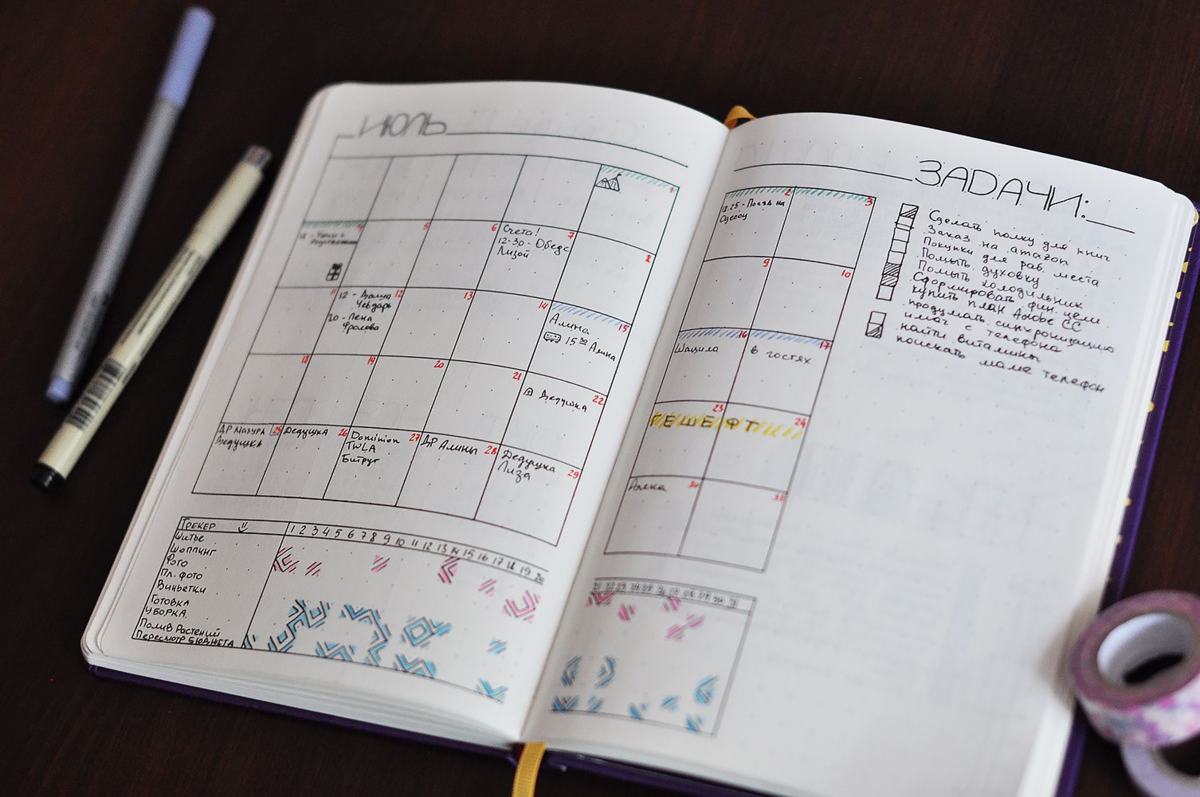 ИЮЛЬ
1
4
5
6
7
Счета!
12-30 - Обед с
Лизой
8
11
12
12 -
Чебдарь
20 - Лена
Фролова
13
14
15
Алина
15 Алина
18
19
20
21
22
Дедушка
ДР Мазура
25
Дедушка
Дедушка
26
Dominion
27
TWLA
Битрут
ДР Алины
28
Дедушка
29
Лиза
ТРЕКЕР
1 2 3 4 5 6 7 8 9 10 11 12 13 14 15 16 17 18 19 20
Шитье
Шоппинг
Рого
Пл. фото
Виньетки
Готовка
УБОРКА
Полив Растений
Пересмотр БЮДЖЕТА
2
3
18:25 - Поезд на
Одессу
9
10
16
17
в гостях
23
24
ПЕШБЯТ
Алена
30
31
21 22 23 24 25 26 27 28 29 30 31
ЗАДАЧИ:
Сделать полку для книг
Заказ на amazon
Покупки для раб. места
Помыть духовку
Помыть холодильник
Сформировать фин. цели
купить план Adobe CC
продумать синхронизацию
имас с телефона
найти витамины
поискать маме телефон